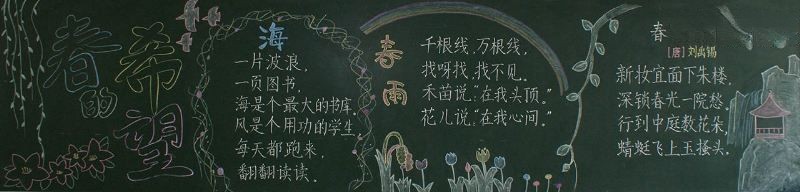 春的希望
海
一片波浪，
一页图书．
海是个最大的书库．
风是个用功的学生．
每天都跑来，
翻翻读读．
春雨
千根线，万根线，
找呀找，找不见。
禾苗说：“在我头顶。”
花儿说：“在我心间。”
春
[唐] 刘禹锡
新妆宜面下朱楼，
深锁春光一院愁。
行到中庭数花朵，
蜻蜓飞上玉搔头．